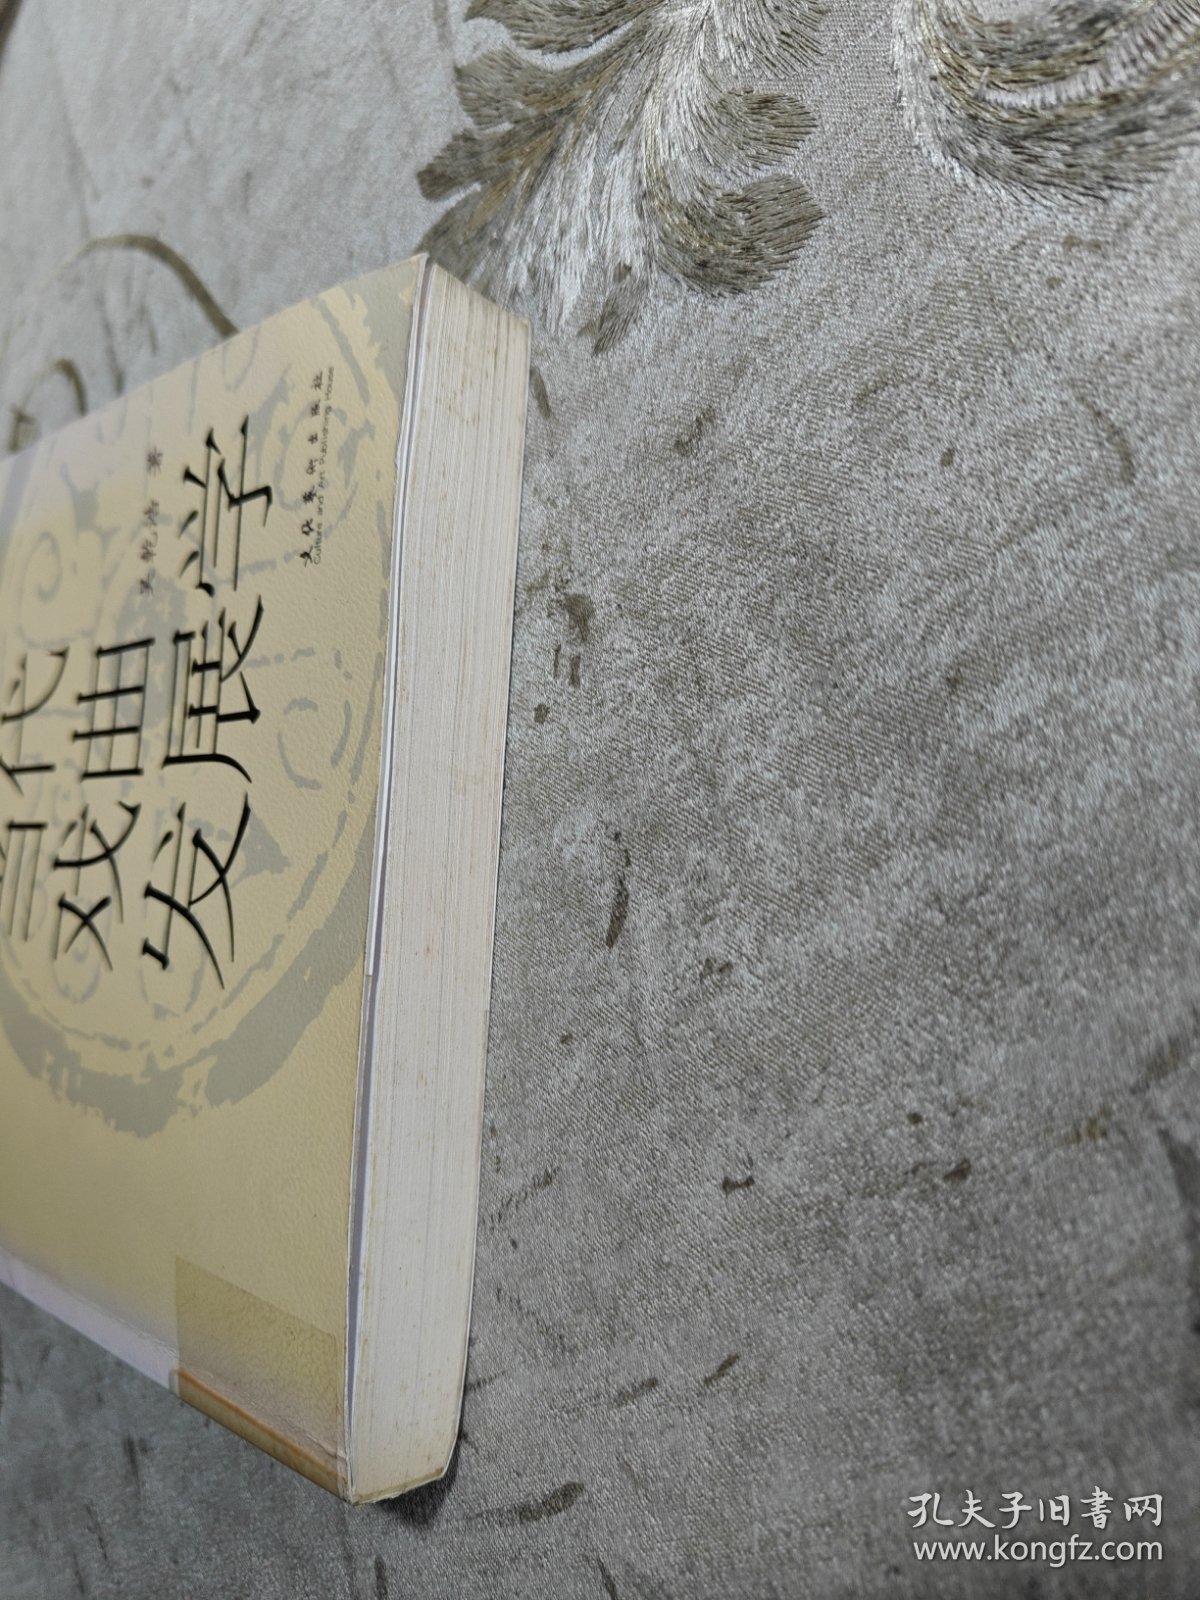 当代
戏曲
发展学
吴乾浩 著
文化艺术出版社
Culture and Art Publishing House
孔夫子旧書网
www.kongfz.com